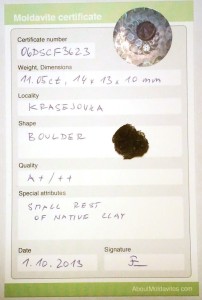 Moldavite certificate
Certificate number
06DSCF3623
Weight, Dimensions
11.05ct, 14 x 13 x 10 mm
Locality
Shape
BOULDER
Quality
A+/++
Special attributes
SMALL REST
OF NATIVE CLAY
Date
Signature
1.10.2013
AboutMoldavites.com